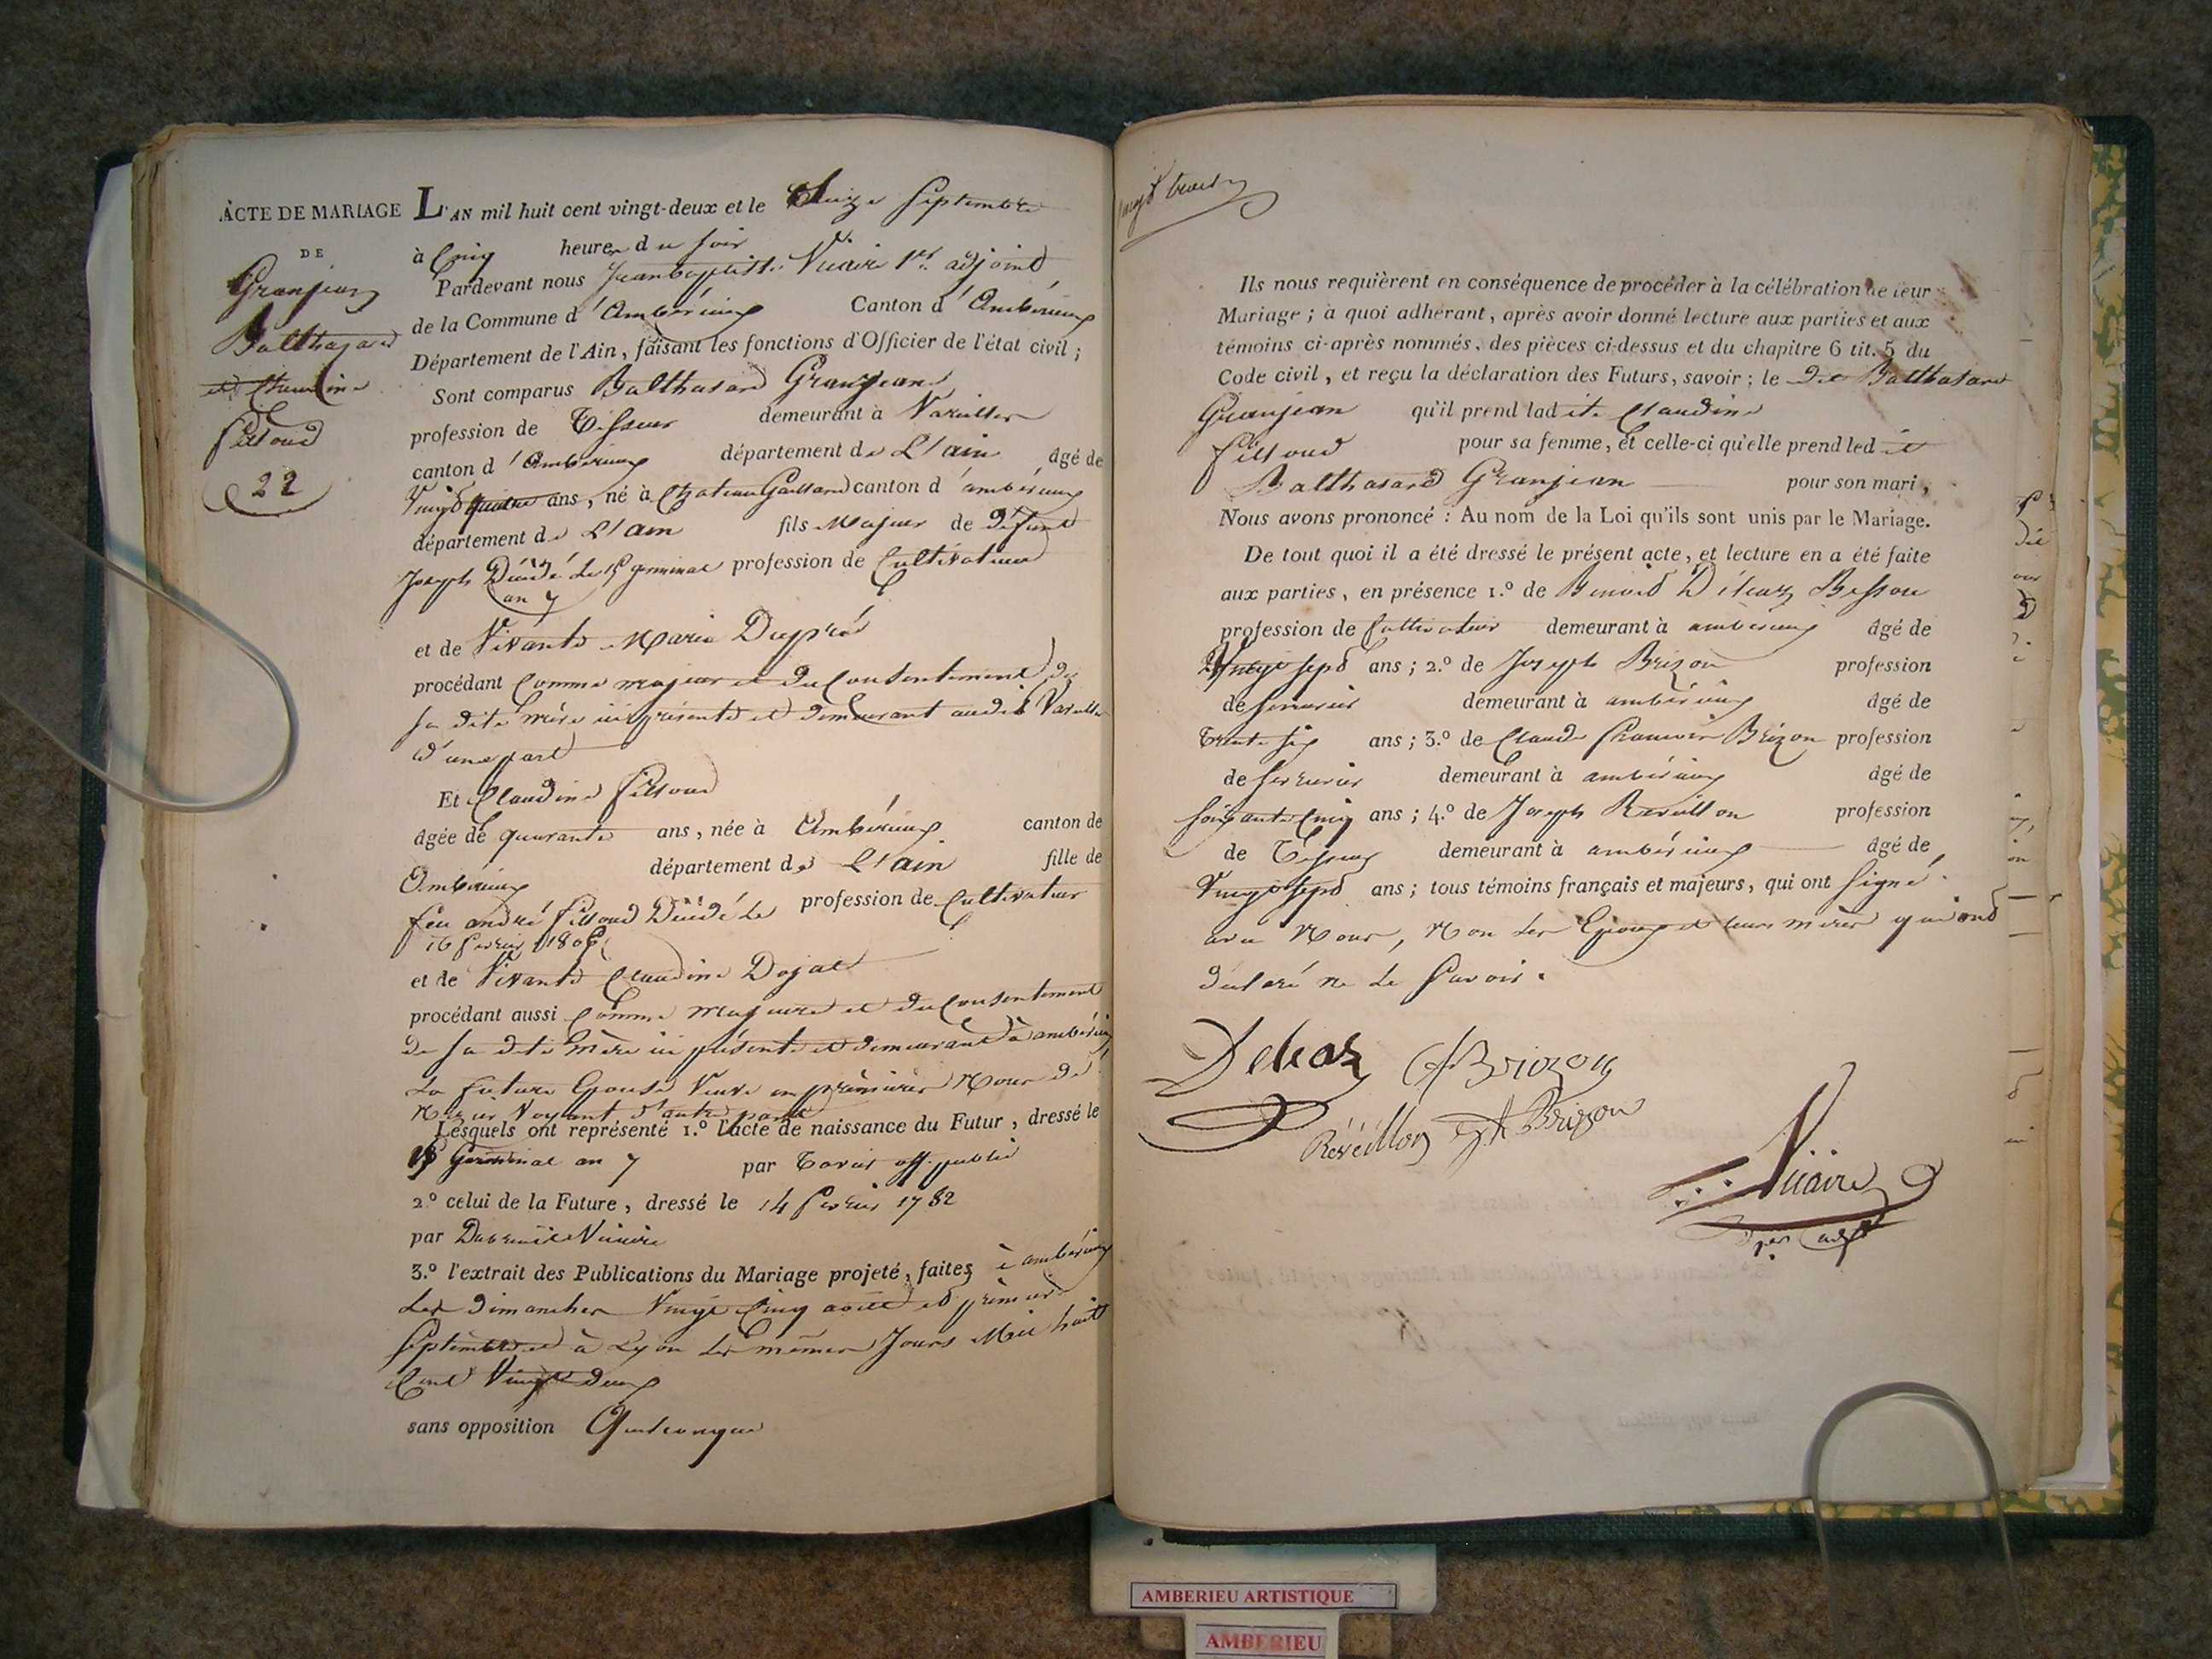 ACTE DE MARIAGE
DE
Granjean
Balthazard
et Claudine
Pilloud
22
L'AN mil huit cent vingt-deux et le Septembre
à Cinq heures du soir
Pardevant nous Jean baptiste Vicaire 1er adjoint
de la Commune d'Ambérieux Canton d'Ambérieux
Département de l'Ain, faisant les fonctions d'Officier de l'état civil;
Sont comparus Balthasard Granjean
profession de Tisseur demeurant à Vareilles
canton d'Ambérieux département de L'ain âgé de
Vingt quatre ans, né à Chateau Gaillard canton d'ambérieux
département de L'ain fils Majeur de défunt
Joseph Décédé le germinal profession de Cultivateur
an 7
et de Vivante Marie Dupré
procédant Comme majeur et du Consentement de
sa dite mère ici présente et demeurant audit Vareilles
d'une part
Et Claudine Pilloud
âgée de quarante ans, née à Ambérieux canton de
Ambérieux département de L'ain fille de
feu andré Pilloud Décédé le profession de Cultivateur
16 fevrier
et de Vivante Claudine Dojat
procédant aussi Comme Majeure et du Consentement
de sa dite mère ici présente et demeurant à ambérieux
La future Epouse Veuve en premières Noces de
Voyant d'autre part
Lesquels ont représenté 1.º l'acte de naissance du Futur, dressé le
Germinal an 7 par off. public
2.º celui de la Future, dressé le 14 fevrier 1782
par Vicaire
3.º l'extrait des Publications du Mariage projeté, faites à ambérieux
Les dimanches Vingt Cinq août et premier
Septembre et à Lyon les mêmes Jours Mil huit
Cent Vingt deux
sans opposition Quelconque
vingt trois
Ils nous requièrent en conséquence de procéder à la célébration de leur
Mariage; à quoi adhérant, après avoir donné lecture aux parties et aux
témoins ci-après nommés, des pièces ci-dessus et du chapitre 6 tit. 5 du
Code civil, et reçu la déclaration des Futurs, savoir; le dit Balthasard
Granjean qu'il prend ladite Claudine
Pilloud pour sa femme, et celle-ci qu'elle prend ledit
Balthasard Granjean pour son mari,
Nous avons prononcé: Au nom de la Loi qu'ils sont unis par le Mariage.
De tout quoi il a été dressé le présent acte, et lecture en a été faite
aux parties, en présence 1.º de Benoit Béssou
profession de Cultivateur demeurant à ambérieux âgé de
Vingt sept ans; 2.º de Joseph Brizon profession
de serrurier demeurant à ambérieux âgé de
Trente six ans; 3.º de Claude François Brizon profession
de serrurier demeurant à ambérieux âgé de
soixante Cinq ans; 4.º de Joseph Reveillon profession
de Tisseur demeurant à ambérieux âgé de
Vingt sept ans; tous témoins français et majeurs, qui ont signé
avec Nous, Non les Epoux et leurs mères qui ont
déclaré ne le Savoir.
Brizon
Réveillon Brizon
Vicaire
1er adjt
AMBERIEU ARTISTIQUE
AMBERIEU